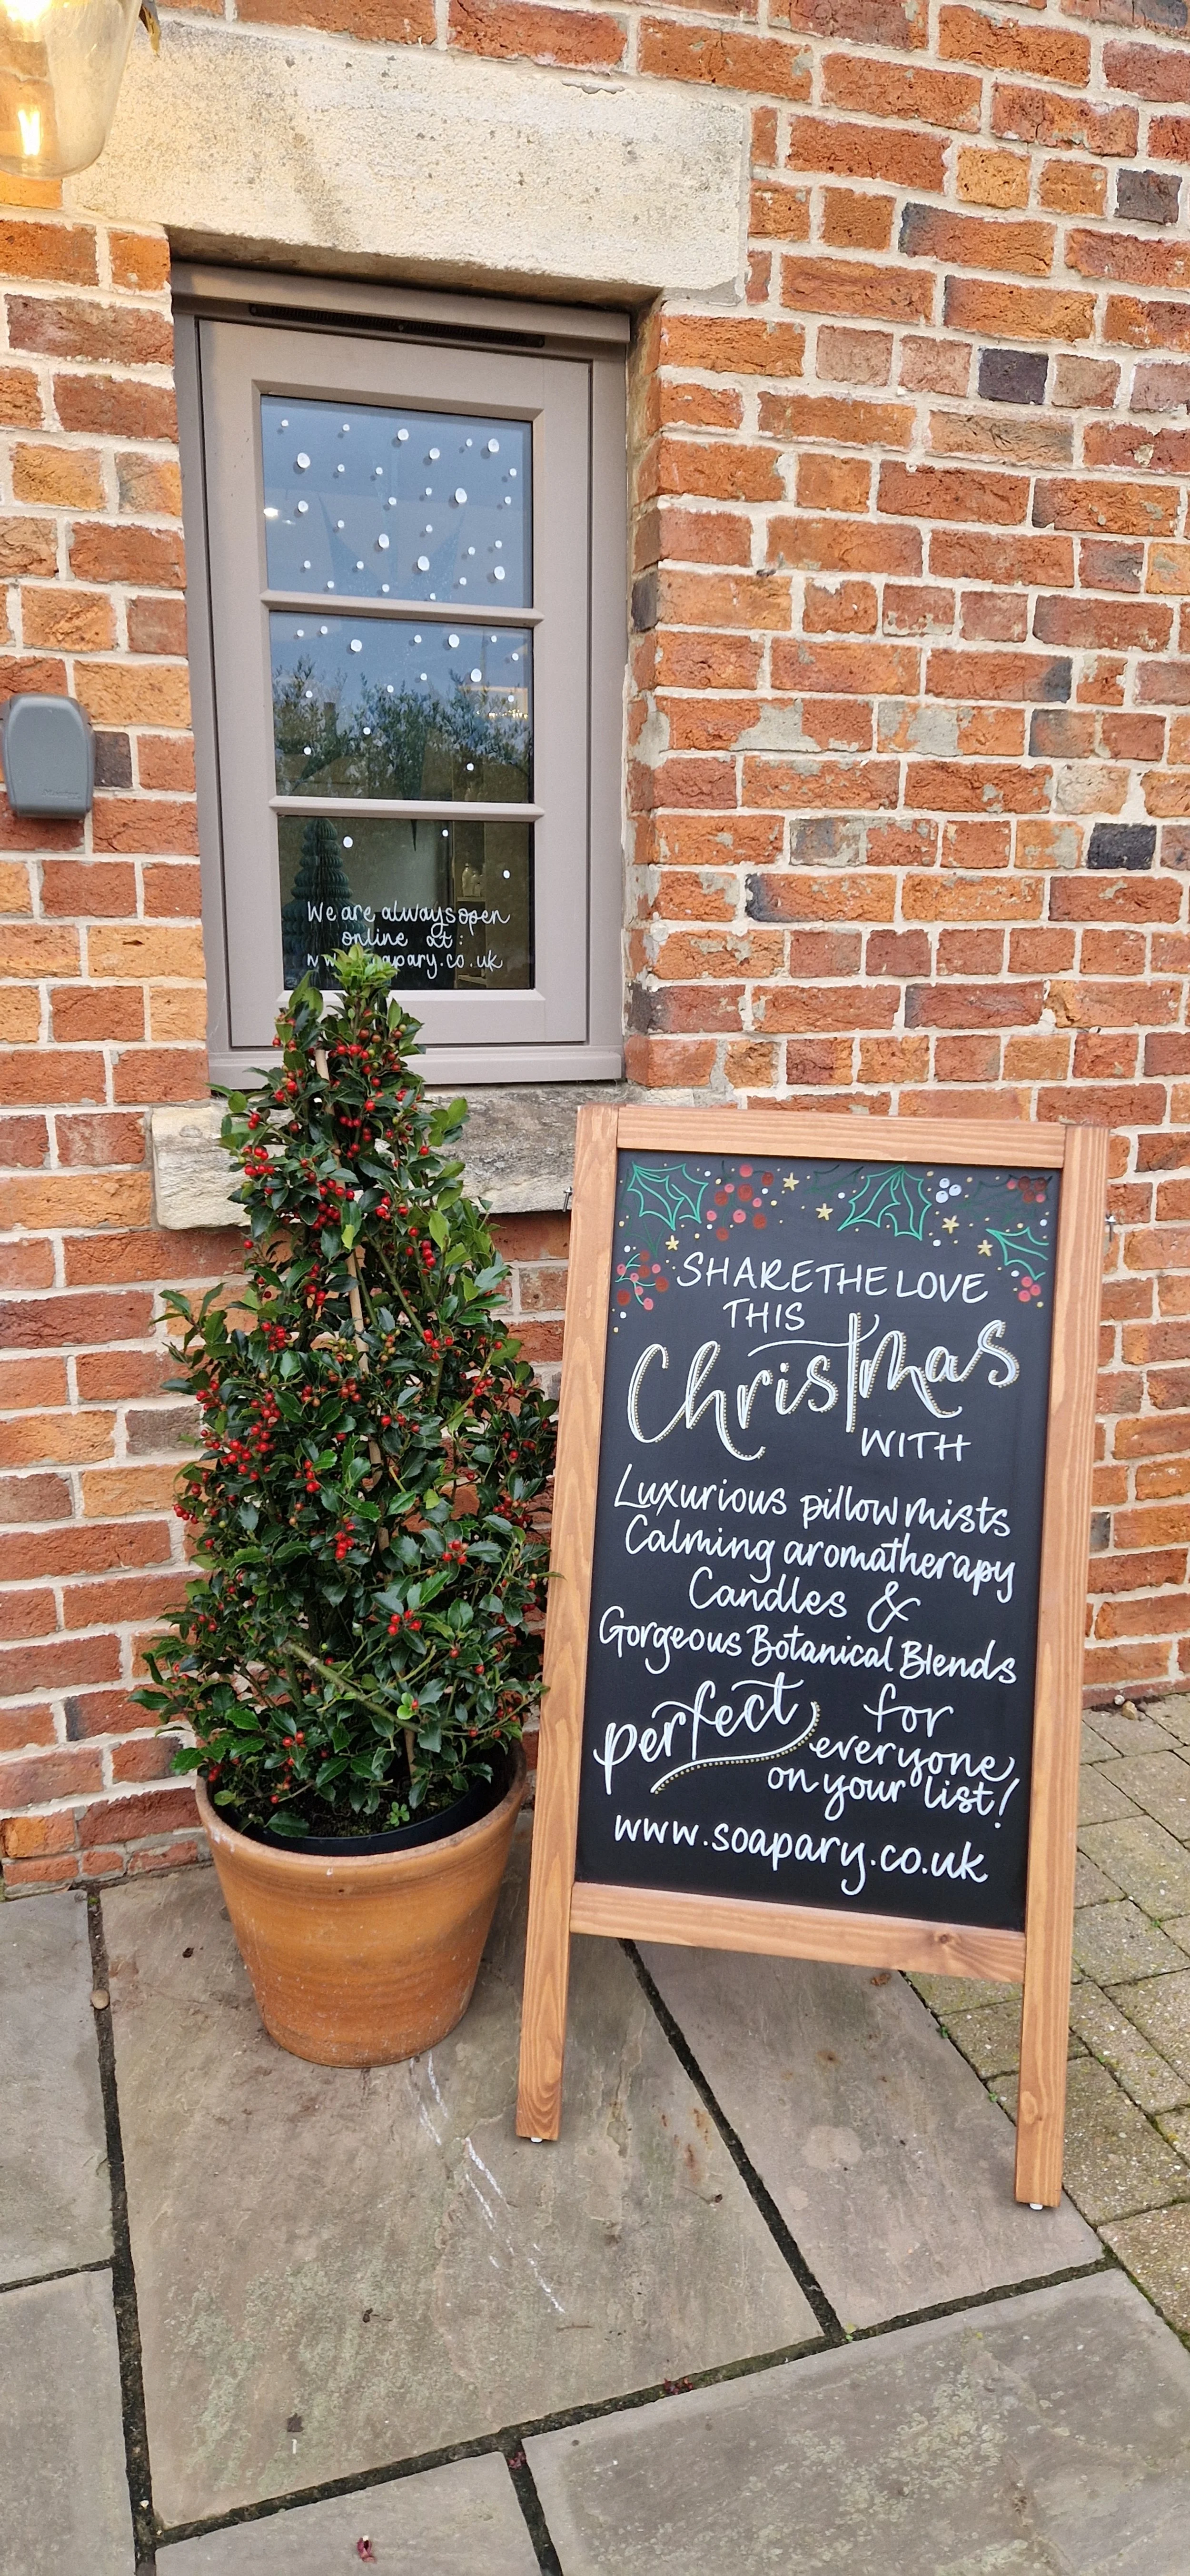 We are always open
online at:
apary.co.uk
SHARE THE LOVE
THIS
Christmas
WITH
Luxurious pillow mists
Calming aromatherapy
Candles &
Gorgeous Botanical Blends
perfect for
everyone
on your list!
www.soapary.co.uk